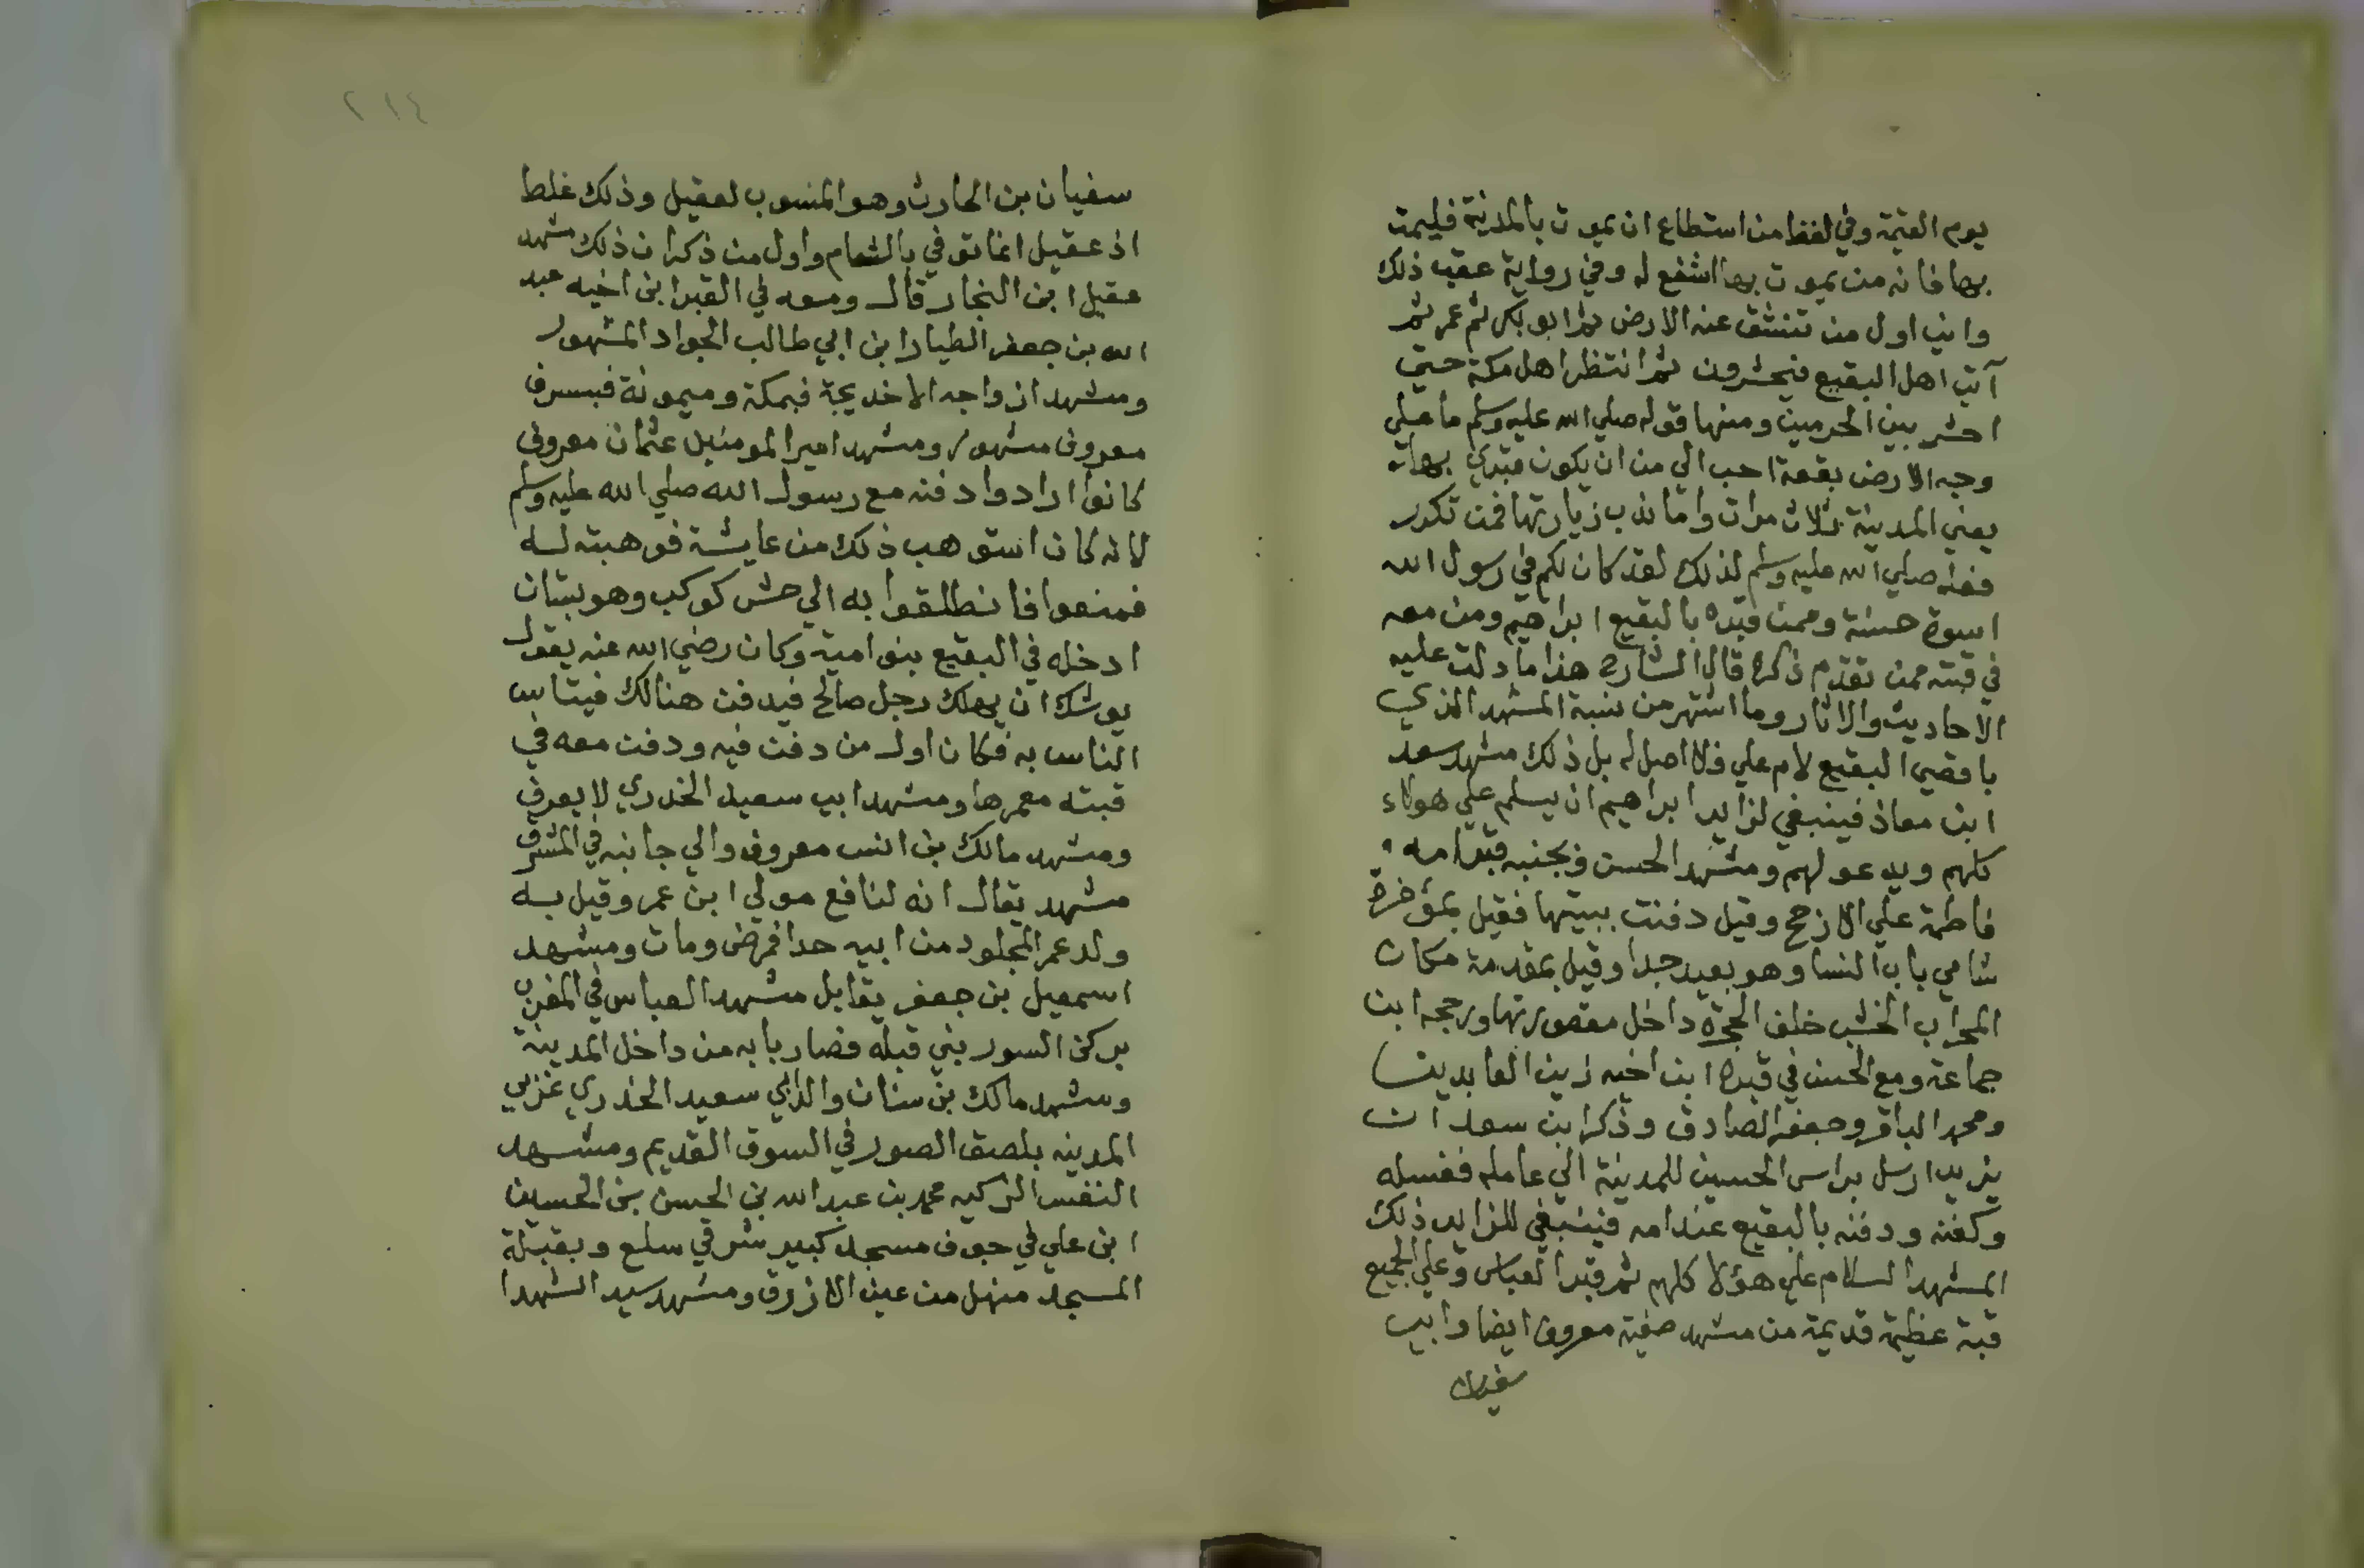 يوم القيمة وفي لفظ من استطاع ان يموت بالمدينة فليمت
بها فانه من يموت بها اشفع له وفي رواية عقب ذلك
واني اول من تنشق عنه الارض ثم ابو بكر ثم عمر ثم
آتي اهل البقيع فيحشرون ثم انتظر اهل مكة حتى
احشر بين الحرمين ومنها قوله صلي الله عليه وسلم ما علي
وجه الارض بقعة احب الي من ان يكون قبري بها
يعني المدينة ثلاث مرات واما ندب زيارتها فمن تكرر
فعله صلي الله عليه وسلم لذلك لقد كان لكم في رسول الله
اسوة حسنة وممن قبره بالبقيع ابراهيم ومن معه
في قبته ممن تقدم ذكره قال الشارح هذا ما دلت عليه
الاحاديث والاثار وما اشتهر من نسبة المشهد الذي
باقصي البقيع لام علي فلا اصل له بل ذلك مشهد سعد
ابن معاذ فينبغي لزاير ابراهيم ان يسلم علي هولاء
كلهم ويدعو لهم ومشهد الحسن وبجنبه قبر امه
فاطمة علي الارجح وقيل دفنت ببيتها فقيل بمؤخرة
شامي باب النسا وهو بعيد جدا وقيل بمقدمة مكان
المحراب الخشب خلف الحجرة داخل مقصورتها ورجحه ابن
جماعة ومع الحسن في قبره ابن اخيه زين العابدين
ومحمد الباقر وجعفر الصادق وذكر ابن سعد ان
يزيد ارسل براس الحسين للمدينة الي عامله فغسله
وكفنه ودفنه بالبقيع عند امه فينبغي للزاير ذلك
المشهد السلام علي هؤلا كلهم ثم قبر العباس وعلي الجميع
قبة عظيمة قديمة من مشهد صفية معروف ايضا وابي
سفيان
٢١٤
سفيان بن الحارث وهو المنسوب لعقيل وذلك غلط
اذ عقيل انما توفي بالشام واول من ذكر ان ذلك مشهد
عقيل ابن النجار قال ومعه في القبر ابن اخيه عبد
الله بن جعفر الطيار ابن ابي طالب الجواد المشهور
ومشهد ازواجه الا خديجة فبمكة وميمونة فبسرف
معروف مشهور ومشهد امير المومنين عثمان معروف
كانوا ارادوا دفنه مع رسول الله صلي الله عليه وسلم
لانه كان استوهب ذلك من عايشة فوهبته له
فمنعوا فانطلقوا به الي حش كوكب وهو بستان
ادخله في البقيع بنو امية وكان رضي الله عنه يقول
يوشك ان يهلك رجل صالح فيدفن هنالك فيتاس
الناس به فكان اول من دفن فيه ودفن معه في
قبته معمرها ومشهد ابي سعيد الخدري لا يعرف
ومشهد مالك بن انس معروف والي جانبه في المشرق
مشهد يقال انه لنافع مولي ابن عمر وقيل به
ولد عمر المجلود من ابيه حدا فمرض ومات ومشهد
اسمعيل بن جعفر يقابل مشهد العباس في المغرب
بركن السور بني قبله فصار بابه من داخل المدينة
ومشهد مالك بن سنان والد ابي سعيد الخدري غربي
المدينه بلصق الصور في السوق القديم ومشهد
النفس الزكيه محمد بن عبد الله بن الحسن بن الحسين
ابن علي في جوف مسجد كبير شرقي سلع وبقبلة
المسجد منهل من عين الازرق ومشهد سيد الشهدا